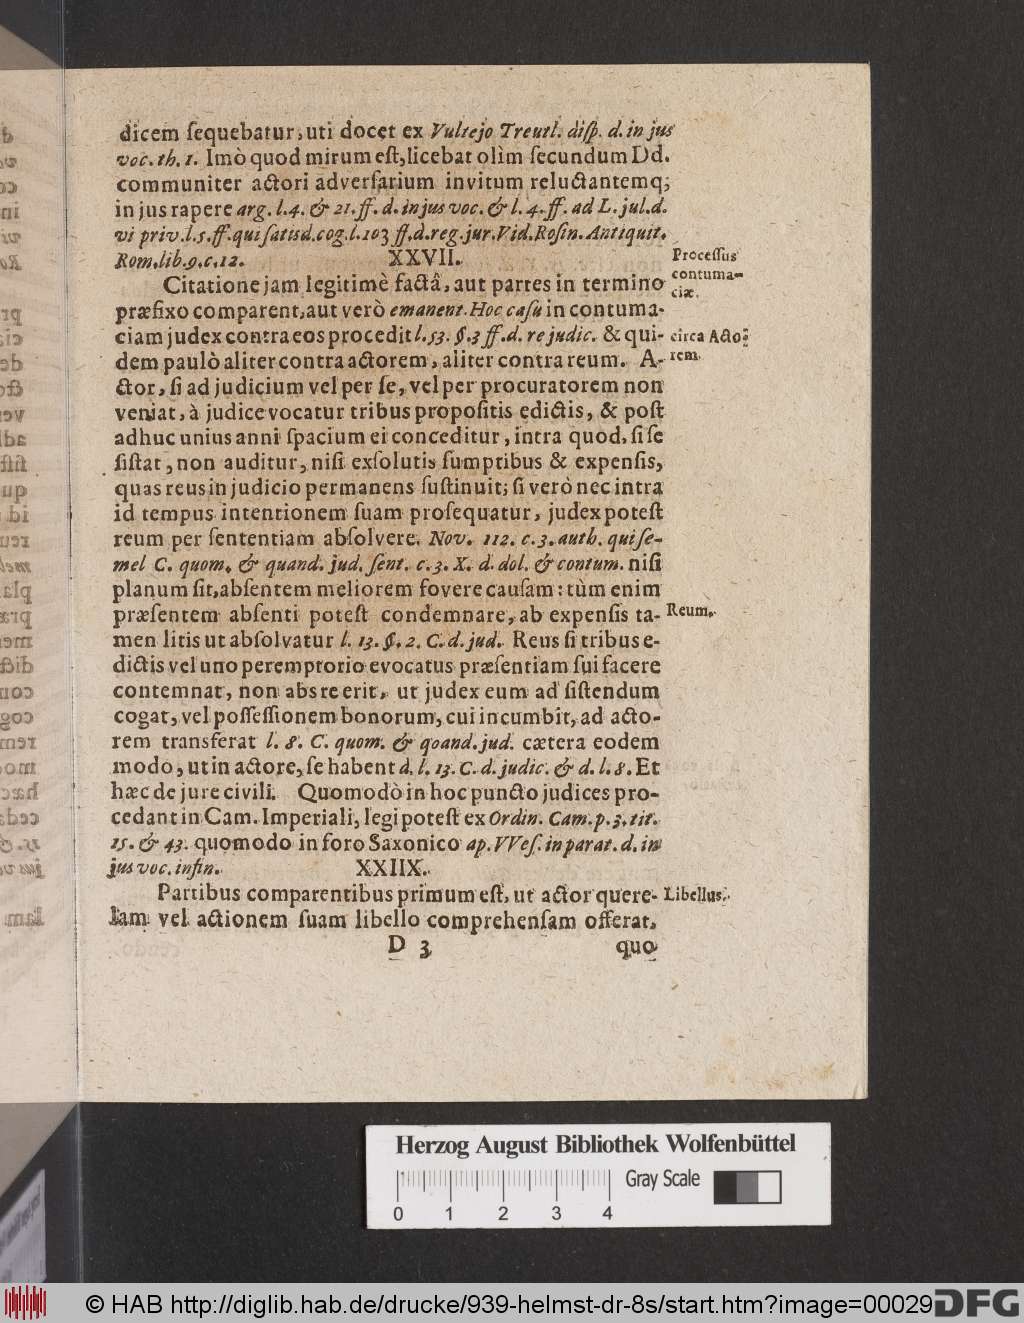 dicem ſequebatur, uti docet ex Vultejo Treutl. diſp. d. in jus
voc. th. 1. Imò quod mirum eſt, licebat olìm ſecundum Dd.
communiter actori adverſarium invitum reluctantemq;
in jus rapere arg. l. 4. & 21. ff. d. in jus voc. & l. 4. ff. ad L. jul. d.
vi priv. l. 5. ff. qui ſatisd. cog. l. 103 ff. d. reg. jur. Vid. Roſin. Antiquit.
Rom. lib. 9. c. 12. XXVII.
Proceſſus
contuma-
ciæ.
Citatione jam legitimè factâ, aut partes in termino
præfixo comparent, aut verò emanent. Hoc caſu in contuma-
ciam judex contra eos procedit l. 53. §. 3 ff. d. re judic. & qui-
circa Acto-
rem.
dem paulò aliter contra actorem, aliter contra reum. A-
ctor, ſi ad judicium vel per ſe, vel per procuratorem non
veniat, à judice vocatur tribus propoſitis edictis, & poſt
adhuc unius anni ſpacium ei conceditur, intra quod, ſi ſe
ſiſtat, non auditur, niſi exſolutis ſumptibus & expenſis,
quas reus in judicio permanens ſuſtinuit; ſi verò nec intra
id tempus intentionem ſuam proſequatur, judex poteſt
reum per ſententiam abſolvere. Nov. 112. c. 3. auth. qui ſe-
mel C. quom. & quand. jud. ſent. c. 3. X. d. dol. & contum. niſi
planum ſit, abſentem meliorem fovere cauſam: tùm enim
præſentem abſenti poteſt condemnare, ab expenſis ta-
Reum.
men litis ut abſolvatur l. 13. §. 2. C. d. jud. Reus ſi tribus e-
dictis vel uno peremptorio evocatus præſentiam ſui facere
contemnat, non abs re erit, ut judex eum ad ſiſtendum
cogat, vel poſſeſſionem bonorum, cui incumbit, ad acto-
rem transferat l. 8. C. quom. & qoand. jud. cætera eodem
modo, ut in actore, ſe habent d. l. 13. C. d. judic. & d. l. 8. Et
hæc de jure civili. Quomodò in hoc puncto judices pro-
cedant in Cam. Imperiali, legi poteſt ex Ordin. Cam. p. 3. tit.
15. & 43. quomodo in foro Saxonico ap. VVeſ. in parat. d. in
jus voc. in fin. XXIIX.
Partibus comparentibus primum eſt, ut actor quere-
Libellus.
lam vel actionem ſuam libello comprehenſam offerat,
D 3 quo
Herzog August Bibliothek Wolfenbüttel
Gray Scale
0 1 2 3 4
© HAB http://diglib.hab.de/drucke/939-helmst-dr-8s/start.htm?image=00029
DFG